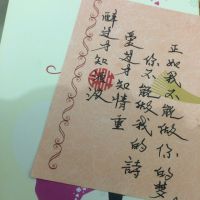 醉过才知酒浓
愛过才知情重
你不能做我的詩
正如我不能做你的梦